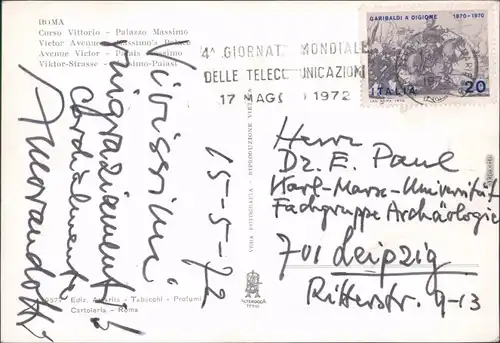 ROMA
Corso Vittorio - Palazzo Massimo
Victor Avenue - Massimo's Palace
Avenue Victor - Palais Massimo
Viktor-Strasse - Massimo-Palast
Vivissimi
ringraziamenti
cordialmente
15-5-72
Ediz. - Tabacchi - Profumi
Cartoleria - Roma
VERA FOTOGRAFIA - RIPRODUZIONE VIETATA
4ª GIORNATA MONDIALE
DELLE TELECOMUNICAZIONI
17 MAGG 1972
GARIBALDI A DIGIONE 1870-1970
ITALIA 20
Herrn
Dr. E. Paul
Karl-Marx-Universität
Fachgruppe Archäologie
701 Leipzig
Ritterstr. 9-13